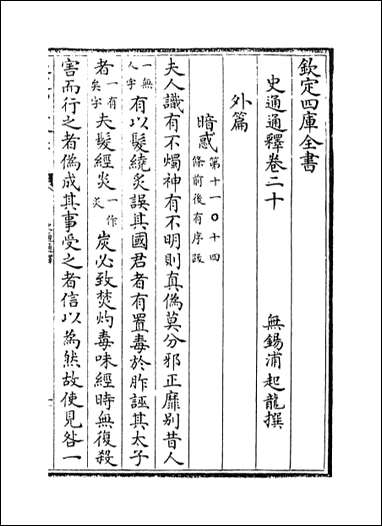 欽定四庫全書
史通通釋卷二十
無錫浦起龍撰
外篇
暗惑第十一〇十四條前後有序跋
夫人識有不燭神有不明則真偽莫分邪正靡別昔人
一無人字有以髮繞炙誤其國君者有置毒於胙誣其太子
者一有矣字夫髮經炎一作炙炭必致焚灼毒味經時無復殺
害而行之者偽成其事受之者信以為然故使見咎一